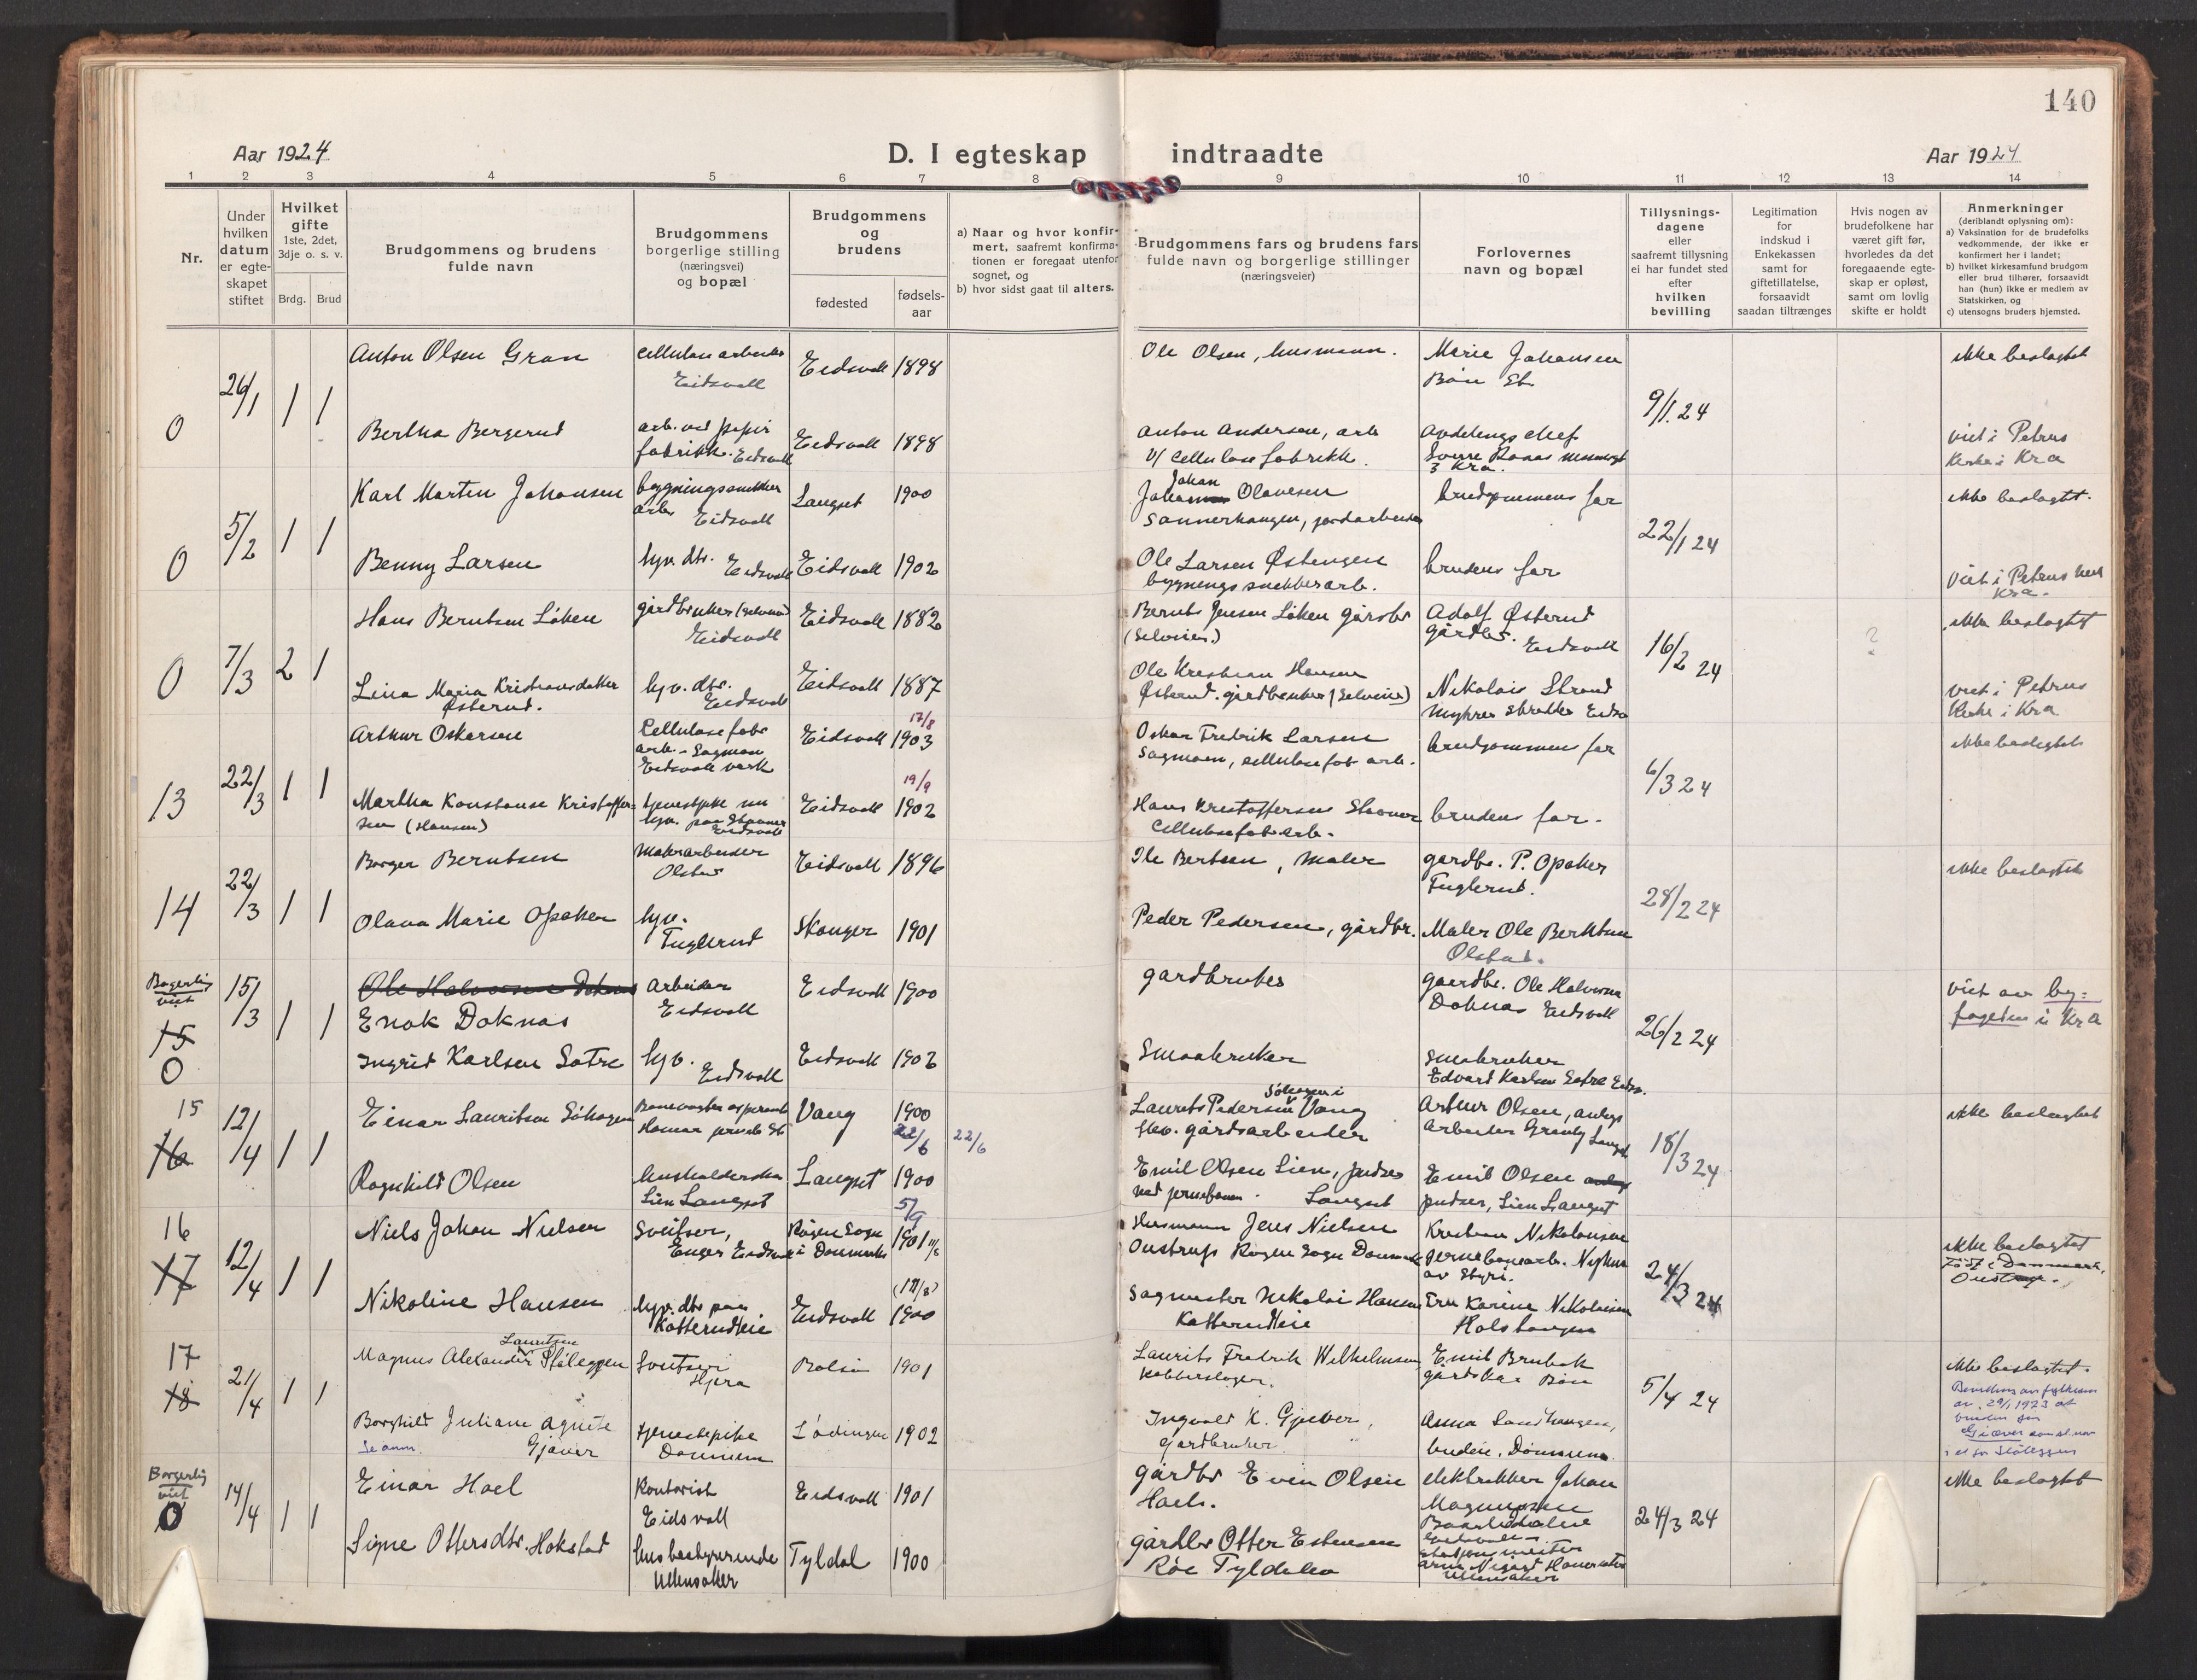 140
Aar 1924
D. I egteskap indtraadte
Aar 1924
1 2 3 4 5 6 7 8 9 10 11 12 13 14
Nr.
Under hvilken datum er egte- skapet stiftet
Hvilket gifte 1ste, 2det, 3dje o. s. v.
Brdg. Brud
Brudgommens og brudens fulde navn
Brudgommens borgerlige stilling (næringsvei) og bopæl
Brudgommens og brudens
fødested
fødsels- aar
a) Naar og hvor konfir- mert, saafremt konfirma- tionen er foregaat utenfor sognet, og
b) hvor sidst gaat til alters.
Brudgommens fars og brudens fars fulde navn og borgerlige stillinger (næringsveier)
Forlovernes navn og bopæl
Tillysnings- dagene eller saafremt tillysning ei har fundet sted efter hvilken bevilling
Legitimation for indskud i Enkekassen samt for giftetillatelse, forsaavidt saadan tiltrænges
Hvis nogen av brudefolkene har været gift før, hvorledes da det foregaaende egte- skap er opløst, samt om lovlig skifte er holdt
Anmerkninger
(deriblandt oplysning om):
a) Vaksination for de brudefolks vedkommende, der ikke er konfirmert her i landet;
b) hvilket kirkesamfund brudgom eller brud tilhører, forsaavidt han (hun) ikke er medlem av Statskirken, og
c) utensogns bruders hjemsted.
0 26/1 1 1
Anton Olsen Gran
cellulose arbeider
Eidsvoll
Eidsvoll 1898
Ole Olsen, husmann.
Marie Johansen
Bøn St.
9/1.24
ikke beslagtet
Bertha Bergerud
arb. ved papir
fabrikk. Eidsvoll
Eidsvoll 1898
Anton Andersen, arb
v/ Cellulose fabrikk.
Avdelings chef
Kra.
viet i Petrus
kirke i Kra
0 5/2 1 1
Karl Martin Johansen
bygningssnekker
arb. Eidsvoll
Langset 1900
Johan
Olavesen
Sannerhaugen, jordarbeider
brudgommens far
22/1 24
ikke beslagtet.
Benny Larsen
hjv. dtr. Eidsvoll
Eidsvoll 1902
Ole Larsen Østengen
bygnings snekkerarb.
brudens far
viet i Petrus kirk
Kra.
0 7/3 2 1
Hans Berntsen Løken
gårdbruker (selveier)
Eidsvoll
Eidsvoll 1882
Bernts Jensen Løken gårdbr
(Selveier)
Adolf Østerud
gårdbr. Eidsvoll
16/2 24
?
ikke beslagtet
Lina Maria Kristiansdatter
Østerud.
hjv. dtr.
Eidsvoll
Eidsvoll 1887
Ole Kristian Hansen
Østerud. gårdbruker (Selveier)
Nikolais Strand
viet i Petrus
kirke i Kra
13 22/3 1 1
Arthur Oskarsen
Cellulosefabr
arb. - Sagmoen
Eidsvoll verk
Eidsvoll 17/8 1903
Oskar Fredrik Larsen
Sagmoen, cellulosefab arb.
brudgommens far
6/3 24
ikke beslegtet
Martha Konstanse Kristoffer-
sen (Hansen)
tjenestepike nu
hjv. paa Stavner
Eidsvoll
Eidsvoll 19/9 1902
Hans Kristoffersen Stavner
Cellulosefab.arb.
brudens far.
14 22/3 1 1
Borger Berntsen
Malerarbeider
Olstad
Eidsvoll 1896
Ole Bertsen, maler
gardbr. P. Opaker
Fuglerud.
28/2 24
ikke beslagtet
Olava Marie Opaker
hjv.
Fuglerud
Skonger 1901
Peder Pedersen, gårdbr.
Maler Ole Berntsen
Olstad.
Borgerlig
viet
15
0 15/3 1 1
Ole Halvorsen Doknas
Enok Doknas
Arbeider
Eidsvoll
Eidsvoll 1900
gardbruker
gaardbr. Ole Halvorsen
Doknas Eidsvoll
26/2 24
viet av by-
fogden i Kra
Ingrid Karlsen Sætre
hjv.
Eidsvoll
Eidsvoll 1902
Smaabruker
Smabruker
Edvard Karlsen Sætre Eidsv.
15
16 12/4 1 1
Einar Lauritsen Söhagen
Banevogter aspirant
Hamar
Vang 1900
22/6 22/6
Söhagen i
Laurits Pedersen Vang
gårdsarbeider
Arthur Olsen, anlegs
arbeider
18/3 24
ikke beslægtet
Ragnhild Olsen
husholderske
Lien Langset
Langset 1900
5/9
Emil Olsen Lien, pudser
ved jernbanen. Langset
Emil Olsen
pudser, Lien Langset
16
17 12/4 1 1
Niels Johan Nielsen
Sveitser,
Enger Eidsvoll
Rögen Sogn
i Danmark
1901 11/8
Husmann Jens Nielsen
Oustrup Rögen Sogn Danmark
Kristian Nikolaisen
jernbanearb. Nyhus
av Styri.
24/3 24
ikke beslagtet
Født i Danmark,
Oustrup.
Nikoline Hansen
hjv. dtr paa
Kotterudteie
Eidsvoll (17/8) 1900
Sagmester Nikolai Hansen
Kotterudteie
Fru Karine Nikolaisen
Holshaugen
17
18 21/4 1 1
Lauritsen
Magnus Alexander Støleggen
Sveitser
Hjera
Bolsøi 1901
Laurits Fredrik Wilhelmsen
Kobberslager.
Emil Brubak
Bøn
5/4 24
ikke beslagtet.
Borghild Juliane Agnete
Gjæver
Se anm.
tjenestepike
Dønnum
Lødingen 1902
Ingvald K. Gjæver,
Gardbruker
Anna Sandhaugen,
budeie, Dønnum
Borgerlig
viet
0 14/4 1 1
Einar Hoel
Kontorist
Eidsvoll
Eidsvoll 1901
gårdbr Even Olsen
Hoels.
elektrikker Johan
Magnussen
24/3 24
ikke beslagtet
Signe Ottersdtr. Hokstad
husbestyrerinde
Ullensaker
Tyldal 1900
gårdbr Otter Estensen
Røe Tyldalen
Ullensaker